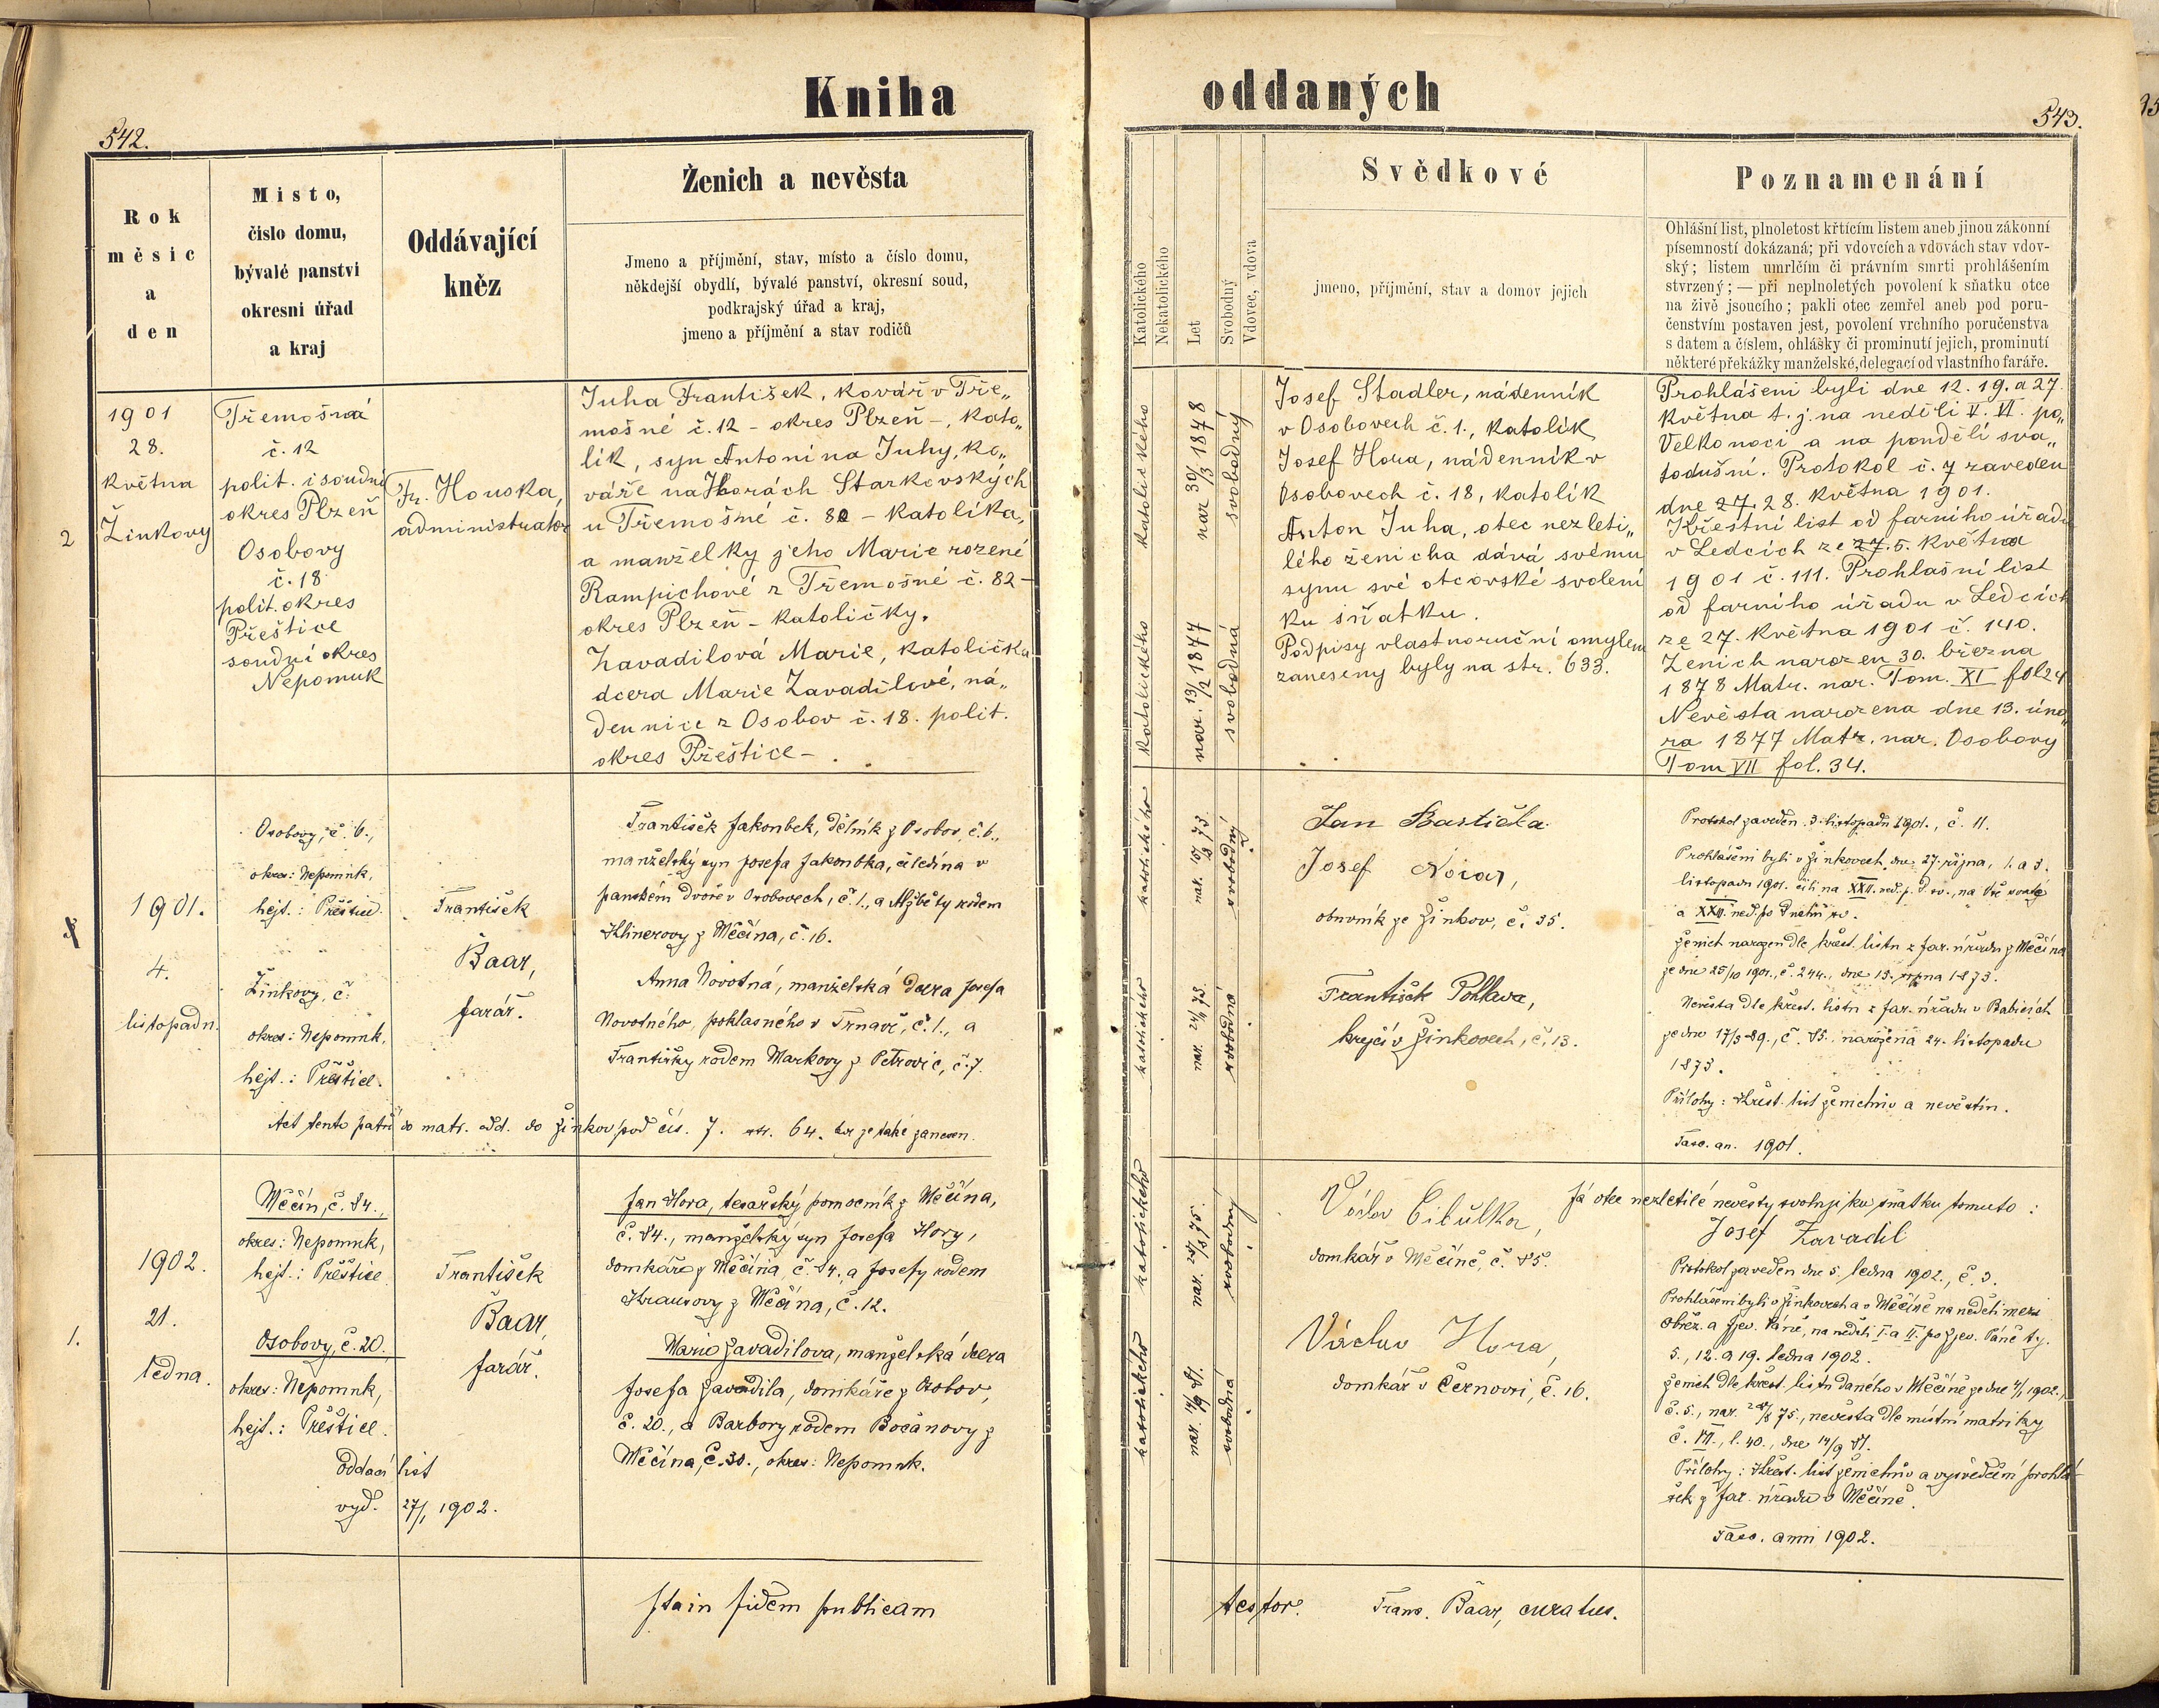 Kniha
542.
Rok
měsíc
a
den
Místo,
čislo domu,
bývalé panství
okresní úřad
a kraj
Oddávající
kněz
Ženich a nevěsta
Jmeno a příjmění, stav, místo a číslo domu,
někdejší obydlí, bývalé panství, okresní soud,
podkrajský úřad a kraj,
jmeno a příjmění a stav rodičů
2
1901
28.
května
Žinkovy
Třemošná
č. 12
polit. i soudní
okres Plzeň
Osobovy
č. 18
polit. okres
Přeštice
soudní okres
Nepomuk
Fr. Houska,
administrator
Juha František, kovář v Tře„
mošné č. 12 - okres Plzeň -, kato„
lík, syn Antonína Juhy, ko„
váře na Horách Starkovských
u Třemošné č. 82 - katolíka,
a manželky jeho Marie rozené
Rampichové z Třemošné č. 82 -
okres Plzeň - katoličky.
Zavadilová Marie, katolička
dcera Marie Zavadilové, ná„
dennice z Osobov č. 18. polit.
okres Přeštice - .
1901.
4.
listopadu.
Osobovy, č. 6.,
okres: Nepomuk,
hejt.: Přeštice.
Žinkovy, č.
okres: Nepomuk,
hejt.: Přeštice.
František
Baar,
farář.
František Jakoubek, dělník z Osobov, č. 6.,
manželský syn Josefa Jakoubka, čeledína v
panském dvoře v Osobovech, č. 1., a Alžběty rodem
Klinerovy z Měčína, č. 16.
Anna Novotná, manželská dcera Josefa
Novotného, poklasného v Trnavě, č. 1., a
Františky rodem Markovy z Petrovic, č. 7.
Act tento patří do matr. odd. do Žinkov pod čís. 7. str. 64. kde je také zanesen.
1.
1902.
21.
ledna.
Měčín, č. 84.,
okres: Nepomuk,
hejt.: Přeštice
Osobovy, č. 20.,
okres: Nepomuk,
hejt.: Přeštice.
oddací list
vyd. 27/1 1902.
František
Baar,
farář.
Jan Hora, tesařský pomocník z Měčína,
č. 84., manželský syn Josefa Hory,
domkáře z Měčína, č. 84., a Josefy rodem
Krausovy z Měčína, č. 12.
Marie Zavadilova, manželská dcera
Josefa Zavadila, domkáře z Osobov,
č. 20., a Barbory rodem Bočanovy z
Měčína, č. 30., okres: Nepomuk.
stain fidem publicam
oddaných
543.
Katolického
Nekatolického
Let
Svobodný
Vdovec, vdova
Svědkové
jmeno, příjmění, stav a domov jejich
Poznamenání
Ohlášní list, plnoletost křtícím listem aneb jinou zákonní
písemností dokázaná; při vdovcích a vdovách stav vdov-
ský; listem umrlčím či právním smrti prohlášením
stvrzený; — při neplnoletých povolení k sňatku otce
na živě jsoucího; pakli otec zemřel aneb pod poru-
čenstvím postaven jest, povolení vrchního poručenstva
s datem a číslem, ohlášky či prominutí jejich, prominutí
některé překážky manželské, delegací od vlastního faráře.
katolického
nar 30/3 1878
svobodný
katolického
nar. 13/2 1877
svobodná
Josef Stadler, nádenník
v Osobovech č. 1., katolík
Josef Hora, nádenník v
Osobovech č. 18, katolík
Anton Juha, otec nezleti„
lého ženicha dává svému
synu své otcovské svolení
ku sňatku.
Podpisy vlastnoruční omylem
zaneseny byly na str. 633.
Prohlášeni byli dne 12. 19. a 27.
května t. j. na neděli V. VI. po„
Velkonoci a na pondělí sva„
todušní. Protokol č. 7 zaveden
dne 27. 28. května 1901.
Křestní list od farního úřadu
v Ledcích ze 27. 5. května
1901 č. 111. Prohlašní list
od farního úřadu v Ledcích
ze 27. května 1901 č. 140.
Ženich narozen 30. března
1878 Matr. nar. Tom. XI fol 24
Nevěsta narozena dne 13. úno„
ra 1877 Matr. nar. Osobovy
Tom VII fol. 34.
katolického
svobodný
katolického
nar. 24/11 73.
svobodná
Jan
Josef
obuvník ze Žinkov, č. 35.
František
krejčí v Žinkovech, č. 13.
Protokol zaveden 3. listopadu 1901., č. 11.
Prohlášeni byli v Žinkovech dne 27. října, 1. a 3.
listopadu 1901. čili na XXII. ned. p. D. sv., na Vše svaté
a XXIII. ned. po Duchu sv.
Ženich narozen dle křest. listu z far. úřadu z Měčína
ze dne 25/10 1901., č. 244., dne 15. srpna 1873.
Nevěsta dle křest. listu z far. úřadu v Babicích
ze dne 17/3 89., č. 85. narozena 24. listopadu
1873.
Přílohy: Křest. list ženichův a nevěstin.
Fasc. an. 1901.
katolického
svobodný
katolického
nar. 14/9 81.
svobodná
Václav Cibulka,
domkář v Měčíně, č. 85.
Václav Hora,
domkář v Černovsi, č. 16.
Já otec nezletilé nevěsty svoluji ku sňatku tomuto:
Josef Zavadil
Protokol zaveden dne 5. ledna 1902., č. 3.
Prohlášeni byli v Žinkovech a v Měčíně na neděli mezi
Obřez. a Zjev. Páně, na neděli I. a II. po Zjev. Páně tj.
5., 12. a 19. ledna 1902.
Ženich dle křest. listu daného v Měčíně ze dne 4/1 1902.,
č. 5., nar. 75., nevěsta dle místní matriky
č. VII., l. 40., dne 14/9 81.
Přílohy: Křest. list ženichův a vysvědčení prohlá-
šek z far. úřadu v Měčíně.
Fasc. anni 1902.
testor. Franc. Baar, curatus.